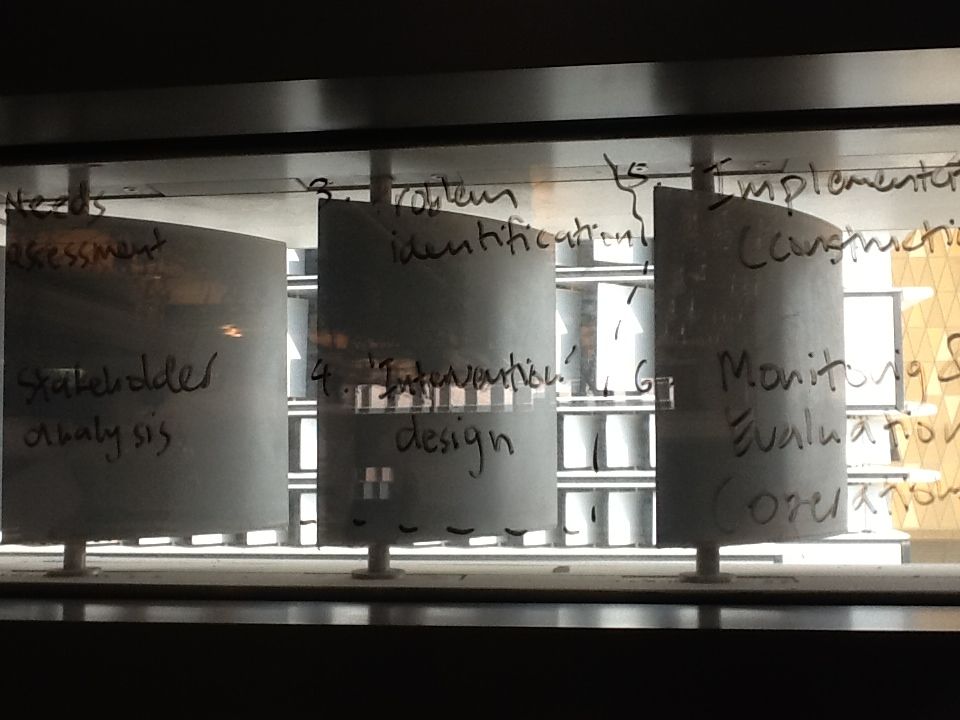 Needs
assessment
Stakeholder
analysis
3. Problem
identification
4. 'Intervention'
design
5. Implementati
(Constructio
6. Monitorig &
Evaluation
(operation